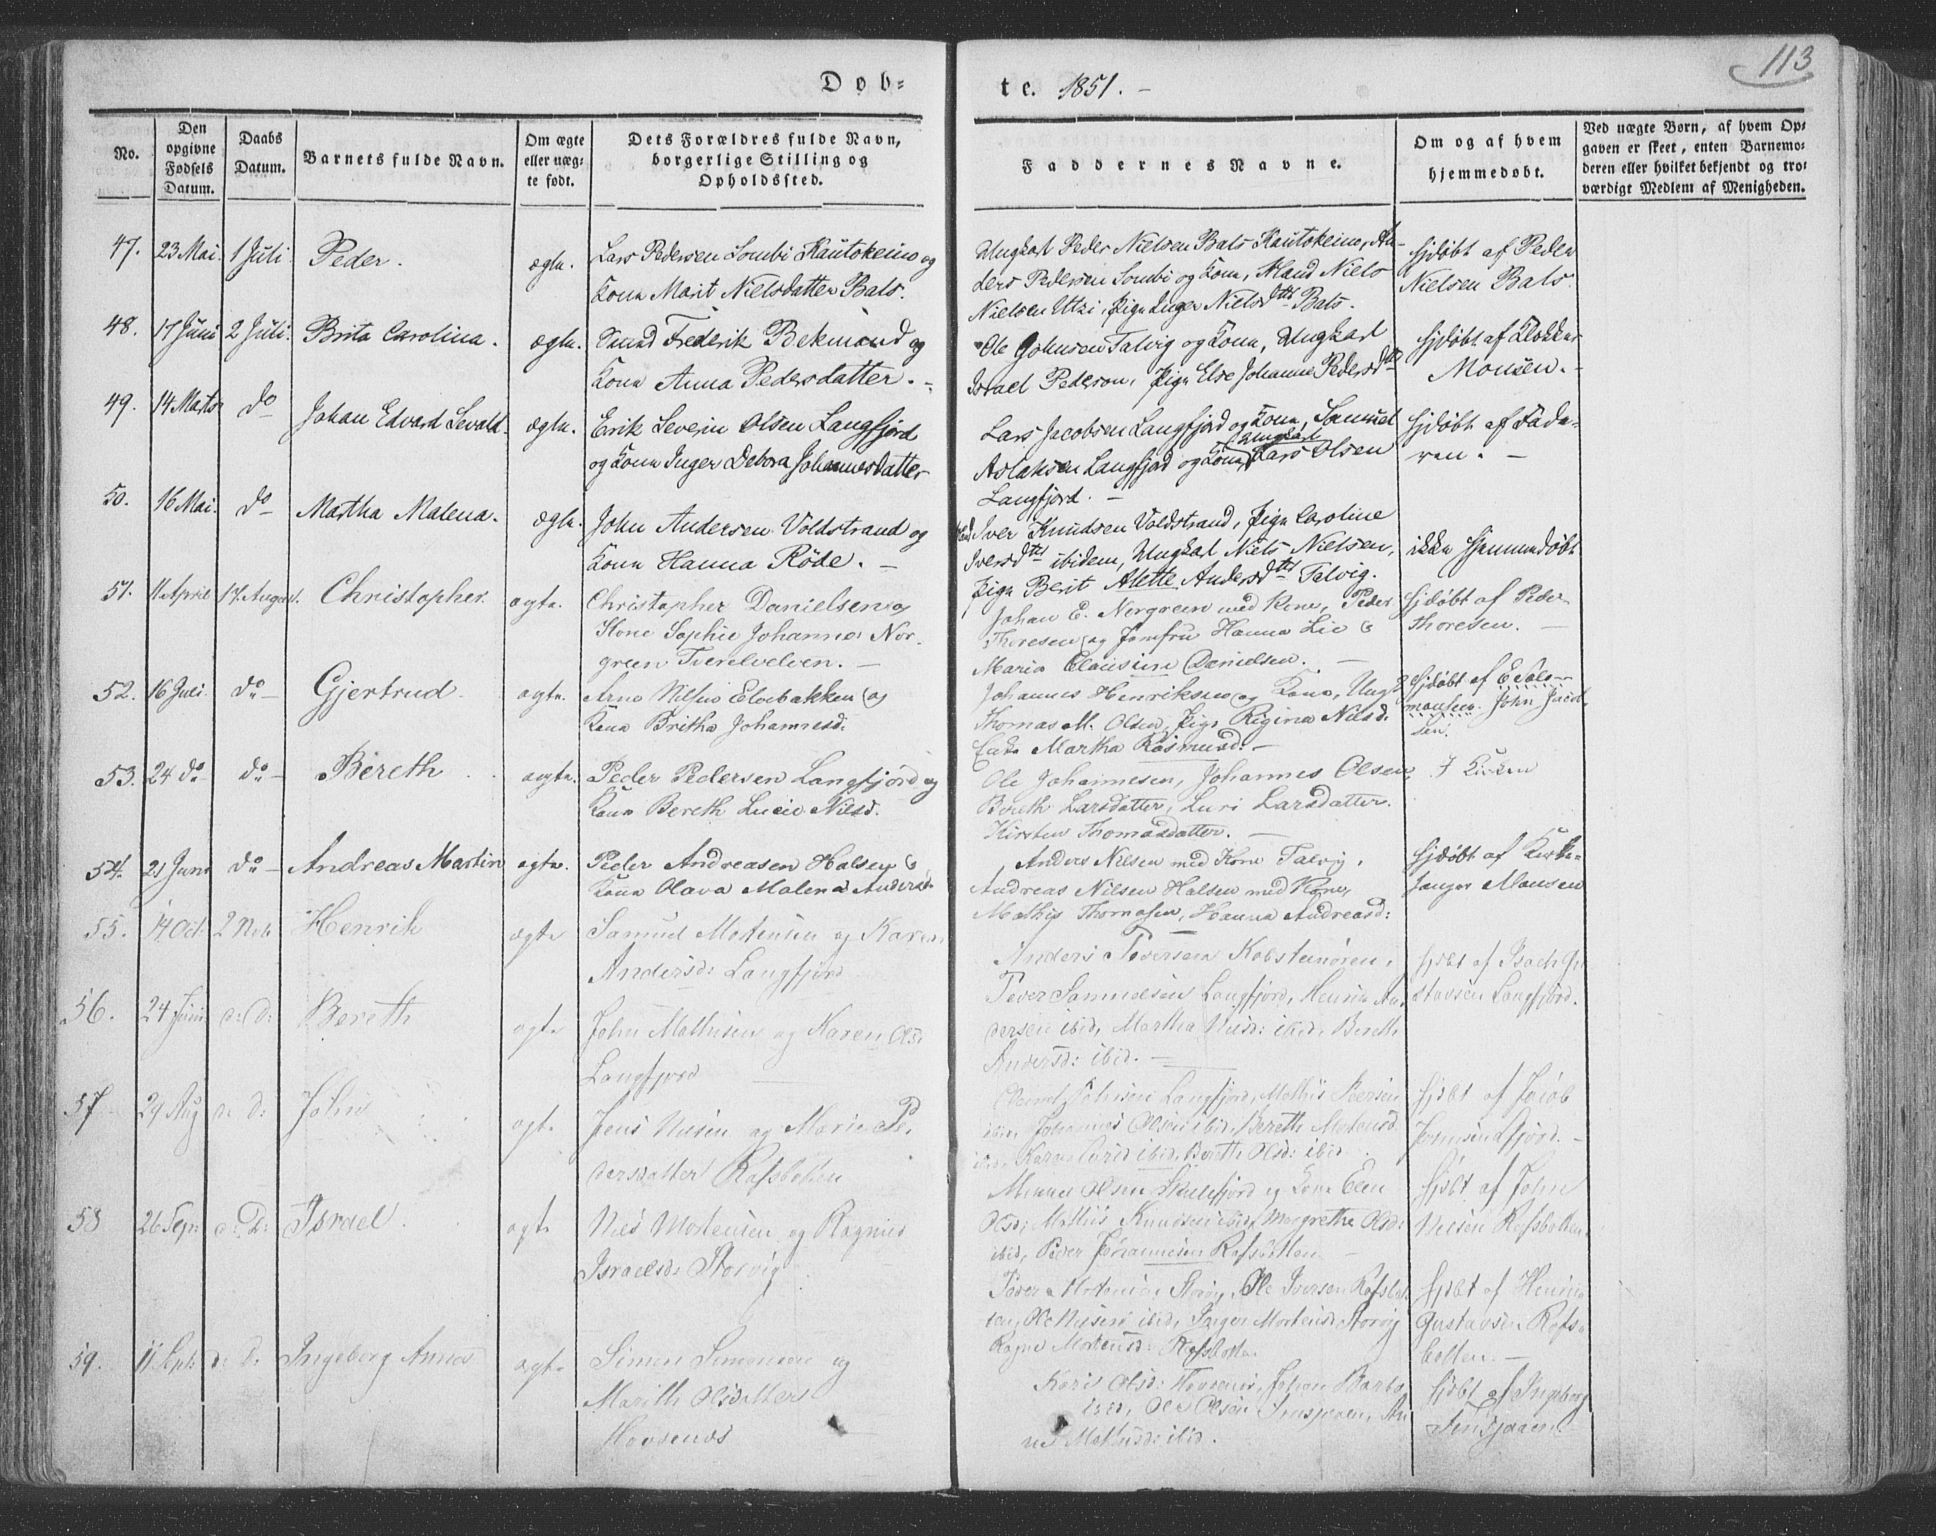 113
Døb-
te. 1851. -
No.
Den opgivne Fødsels Datum.
Daabs Datum.
Barnets fulde Navn.
Om ægte eller uægte født.
Dets Forældres fulde Navn, borgerlige Stilling og Opholdssted.
Faddernes Navne.
Om og af hvem hjemmedøbt.
Ved uægte Børn, af hvem Opgaven er skeet, enten Barnemoderen eller hvilket bekjendt og troværdigt Medlem af Menigheden.
47. 23 Mai. 1 Juli. Peder. ægte. Lars Pedersen Sombi Kautokeino og
Kone Marit Nielsdatter Bals.
Ungkarl Peder Nielsen Bals Kautokeino, An-
ders Pedersen Sombi og Kone, Niels
Nielsen Utzi, Pige Inger Nielsdtr Bals.
Hjdøbt af Peder
Nielsen Bals.
48. 17 Juni 2 Juli. Brita Carolina. ægte. Frederik Bekmand og
Kone Anna Pedersdatter. -
Ole Johnsen Talvig og Kone, Ungkarl
Israel Pederson, Pige Else Johanne Pedersd
Hjdøbt af Klokker
Monsen. -
49. 14 Marts do Johan Edvard Sevald. ægte. Erik Severin Olsen Langfjord
og Kone Inger Debora Johannesdatter
Lars Jacobsen Langfjord og Kone, Samuel
Aslaksen Langfjord og Kone, Ungkarl Lars Olsen
Langfjord. -
Hjdøbt af Fade-
ren. -
50. 16 Mai. do Martha Malena. ægte. John Andersen Voldstrand og
Kone Hanna Röde. -
Iver Knudsen Voldstrand, Pige Caroline
Iversdtr ibidem, Ungkarl Niels Nielsen,
Pige Berit Alette Andersdtr Talvig.
ikke hjemmedøbt
51. 11 April 17 August. Christopher. ægte. Christopher Danielsen og
Kone Sophie Johanne Nor-
green Tverelvelven. -
Johan E. Norgreen med Kone, Peder
Thoresen og Jomfru Hanna Lie &
Maria Danielsen. -
Hjdøbt af Peder
Thoresen. -
52. 16 Juli. do - Gjertrud. ægte. Arne Nilsen Elvebakken og
Kone Britha Johannesd:
Johannes Henriksen og Kone, Ungk
Thomas M. Olsen, Pige Regine Nilsd.
Enke Martha Rasmusd. -
Hjdøbt af E Salo-
monsen. John Jacob-
sen.
53. 24 do - do - Bereth ægte. Peder Pedersen Langfjord og
Kone Bereth Lucie Nilsd.
Ole Johannesen, Johannes Olsen
Bereth Larsdatter, Luri Larsdatter.
Kirsten Thomasdatter. -
I Kirken
54. 21 Juni do - Andreas Martin ægte. Peder Andreasen Halsen &
Kone Olava Malena Andersd.
Anders Nilsen med Kone Talvig,
Andreas Nilsen Halsen med Kone,
Mathis Thomasen, Hanna Andreasd:
Hjdøbt af Kirke-
sanger Monsen
55. 14 Oct. Henrik ægte Samuel Mortensen og Karen
Andersd: Langfjord
Anders Peversen
Pever Samuelsen Langfjord, Henrik An-
dersen ibid, Martha Nilsd: ibid, Bereth
Andersd: ibid. -
Hjdbt af Isach Gu-
stavsen Langfjord.
56. 24 Juni d: d: Bereth ægte John Mathisen og Karen Olsd
Langfjord
Johnsen Langfjord, Mathis
ibid, Johannes Olsen ibid, Bereth Mortensd
ibid, ibid, Bereth Olsd: ibid.
Hjdbt af Jacob
57 29 Aug d: d: John ægte Jens Nilsen og Marie Pe-
dersdatter Rafsbotten
Olsen og Kone Elen
Olsd: Mathis Knudsen ibid, Margrethe Olsd:
ibid, Peder Johannesen Rafsbotten
Hjdbt af John
Nilsen Rafsbotten.
58 26 Sep: d: d: Israel. ægte Nils Mortensen og Ragnild
Israelsd: Storvig
Mortensen Storvig, Ole Iversen Rafsbot-
ten, Ole Nilsen ibid, Inger Mortensd: Storvig
Ragne Mortensd: Rafsbotten.
Hjdbt af Henrik
Gustavsen Rafs-
botten. -
59. 11 Sept: d: d: Ingeborg Anne ægte Simon Simonsen og
Marith Olsdatter
Karis Olsd:
ibid, Ole Olsen
Mathisd: ibid.
Hjdbt af Ingeborg